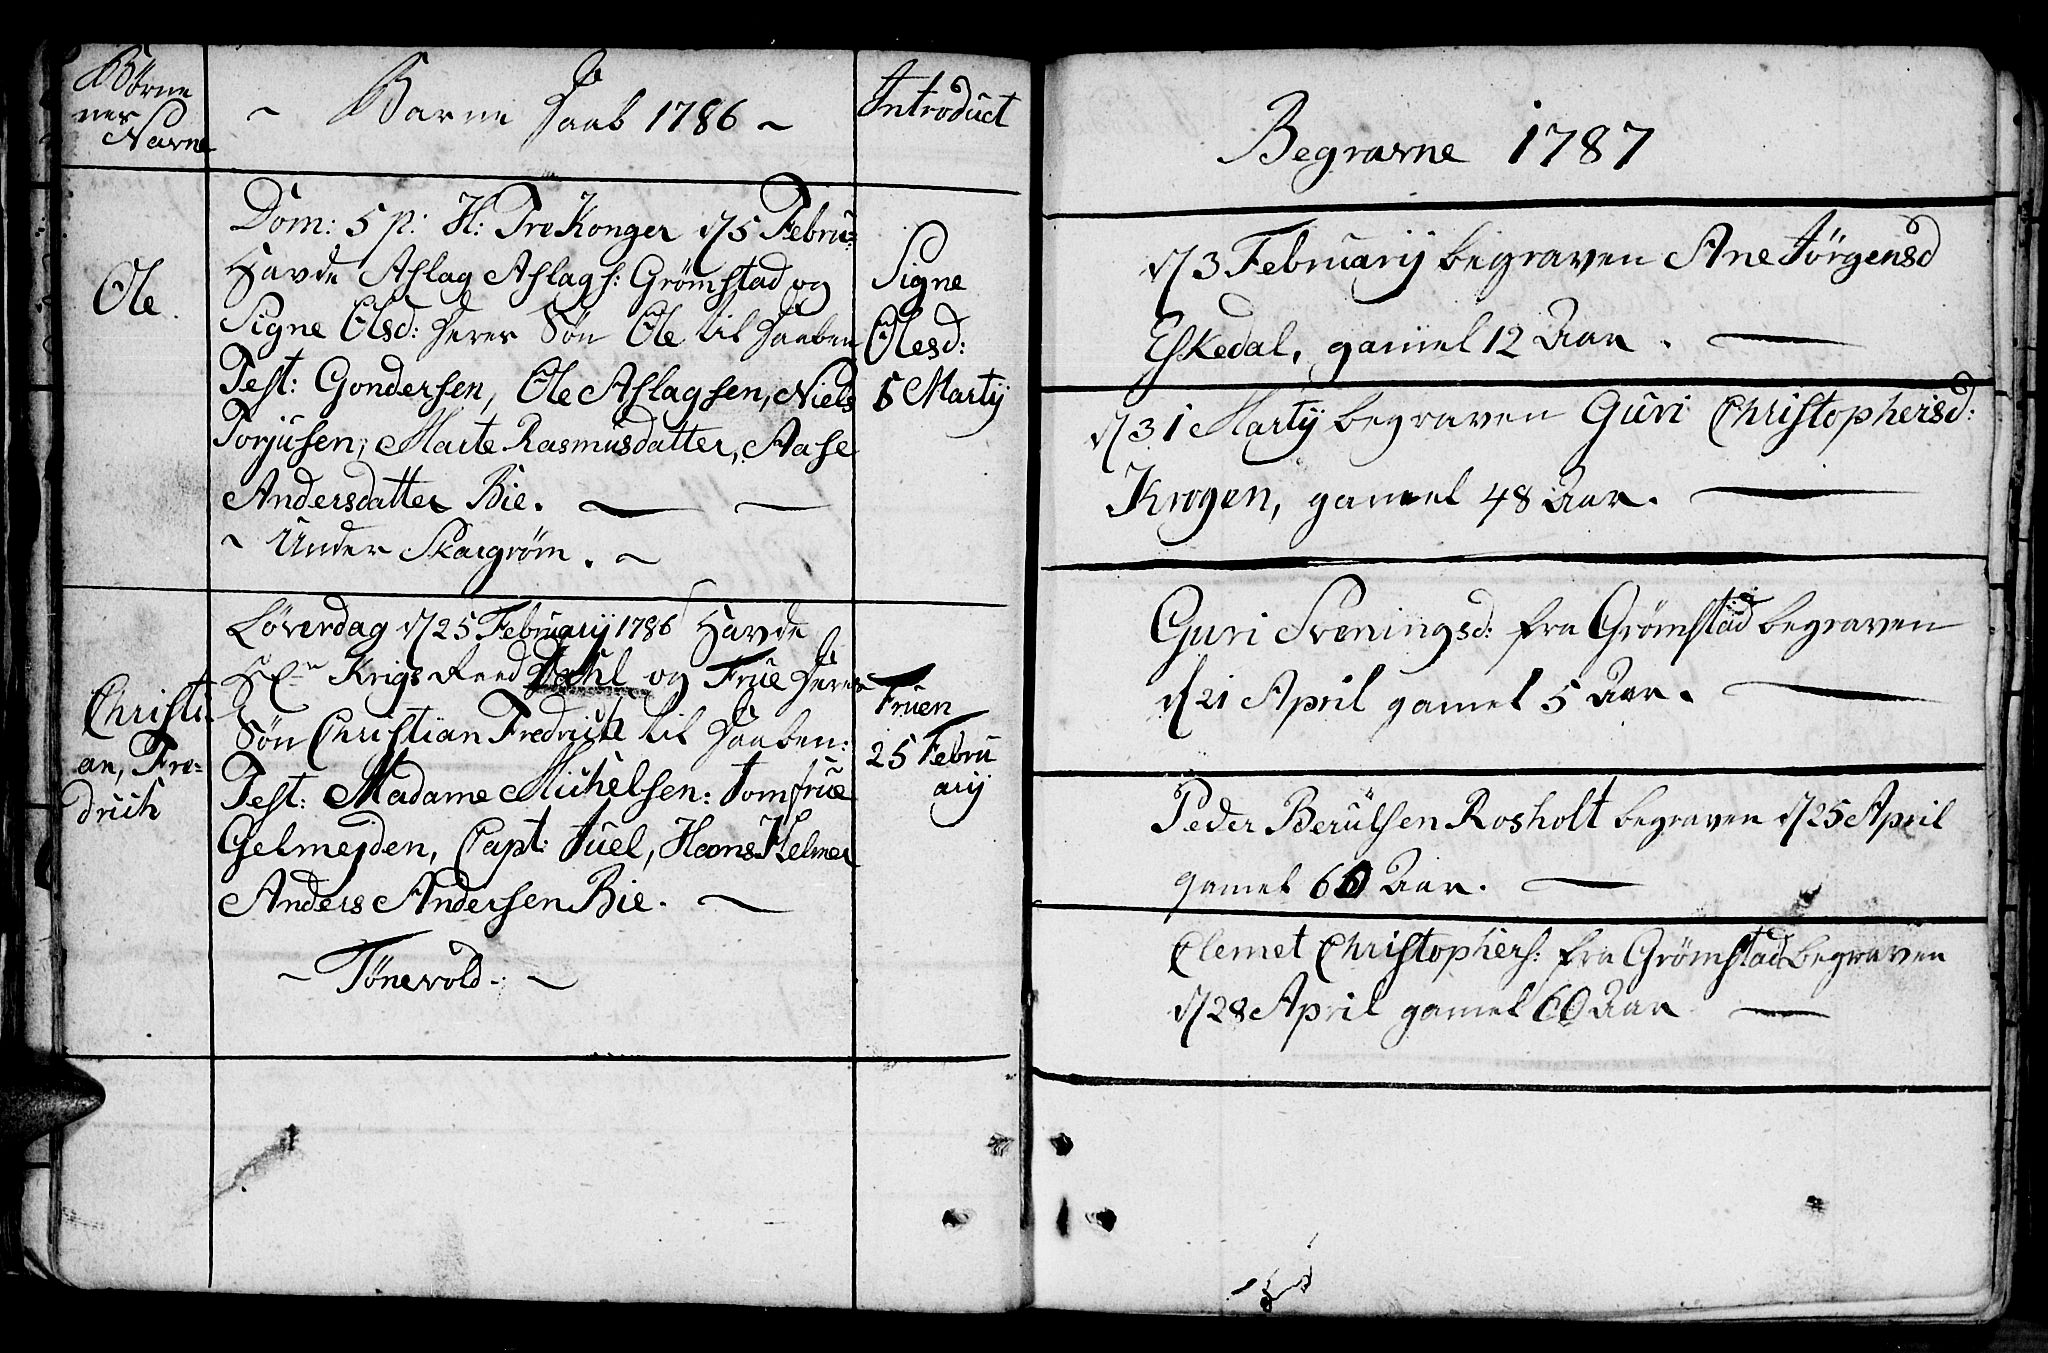 Børne
ner
Navne
~ Barne Daab 1786 ~
Introduct
Ole.
Dom: 5 p: H: Tre Konger d/5 Febru:
Havde Aslag Aslags: Grømstad og
Signe Olsd: Deres Søn Ole til Daaben
Test: Gondersen, Ole Aslagsen, Niels
Torjusen, Marte Rasmusdatter, Aase
Andersdatter Bie.
~ Under Skargrøm. ~
Signe
Olesd:
5 Martij
Christi-
an, Fre-
drich
Løverdag d/25 Februarij 1786 Havde
Hr Krigs Raad Dahl og Frue Deres
Søn Christian Fredrich til Daaben:
Test: Madame Michelsen: Jomfrue
Gelmejden, Capt: Juel, Hans Helmer
Anders Andersen Bie.
~ Tønevold. ~
Fruen
25 Febru
arij
Begravne 1787
d/3 Februarij begraven Ane Jörgensd
Eskedal, gamel 12 Aar.
d/31 Martij begraven Guri Christophersd:
Krogen, gamel 48 Aar.
Guri Sveningsd: fra Grømstad begraven
d/21 April gamel 5 Aar.
Peder Berulsen Rosholt begraven d/25 April
gamel 60 Aar.
Clemet Christophers: fra Grømstad begraven
d/28 April gamel 60 Aar